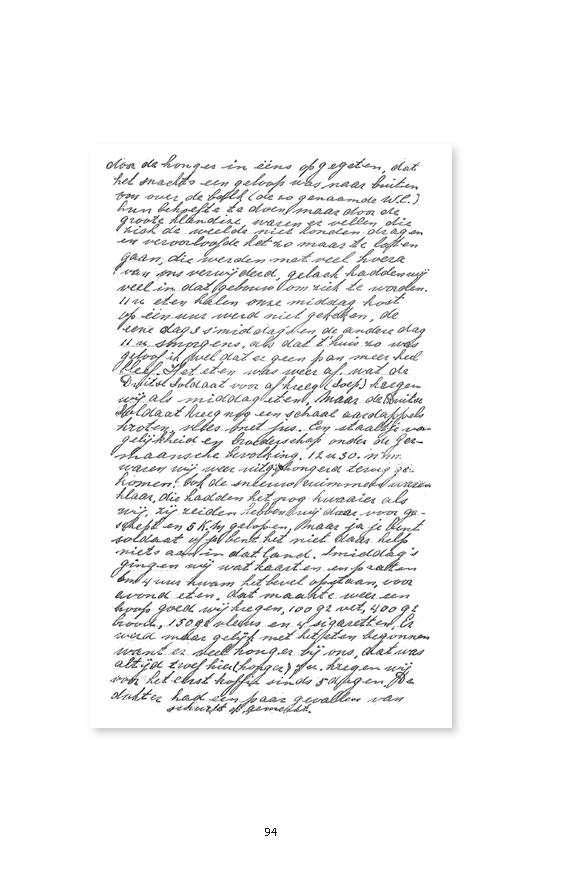 door de honger in ééns opgegeten, dat
het snachts een geloop was naar buiten
om over de balk (de zo genaamde W.C.)
hun behoefte te doen, maar door de
groote klandize, waren er vellen die
zich de weelde niet konden dragen
en veroorloofde het zo maar te laten
gaan, die werden met veel hoera
van ons verwijderd, gelach hadden wij
veel in dat gebouw om ziek te worden.
11 u eten halen onze middag kost
op één uur werd niet gekeken, de
eene dag 3 s'middags en de andere dag
11 u smorgens, als dat t'huis zo was
geloof ik wel dat er geen pan meer heel
bleef. Het eten was weer af. wat de
Duitse Soldaat voor af kreeg (soep) kregen
wij als middag eten, Maar de Duitse
Soldaat kreeg nog een schaal aardappels
kroten, vlees met jus. Een staaltje van
gelijkheid en broederschap onder de Ger-
maansche bevolking. 12 u 30. n.m.
waren wij weer uitgehongerd terug ge-
komen. Ook de nieuwe ruimmers waren
klaar, die hadden het nog kwaaier als
wij, zij zeiden hebben wij daar voor ge-
schept en 5 K.M. gelopen, Maar ja je bent
soldaat of je bent het niet daar help
niets aan in dat land. Smiddag's
gingen wij wat kaarten en pratten
om 4 uur kwam het bevel opstaan, voor
avond eten, dat maakte weer een
hoop goed wij kregen, 100 gr vet, 400 gr
brood, 150 gr vlees en 4 sigaretten. Er
werd maar gelijk met het eten begonnen
want er was honger bij ons, dat was
altijd troef hier (honger) Er kregen wij
voor het eerst koffie sinds 5 dagen, De
dokter had een paar gevallen van
schurft
94